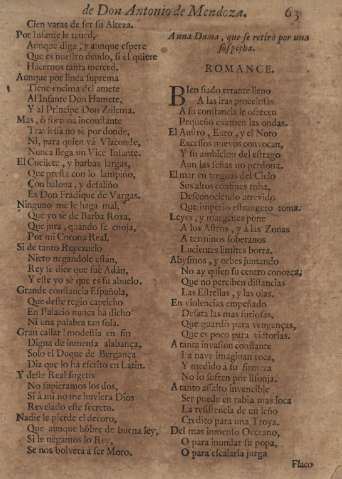 de Don Antonio de Mendoza.
63
Cien varas de ser su Alteza.
Por Infante le
Aunque diga, y aunque espere
Que es nuestro deudo, si el quiere
Haremos tanta merced.
Aunque por linea suprema
Tiene encima el amete
Al Infante Don Hamete,
Y al Principe Don Zulema.
Mas, ò fortuna inconstante
Travesura no sè por donde,
Ni, para quien và Vizconde,
Nunca llega un Vice Infante.
El y barbas largas,
Que presta con lo lampiño,
Con balona, y desaliño
Es Don Fradique de Vargas.
Ninguno me le haga mal,
Que yo sè de Barba Roxa,
Que jura, quando se enoja,
Por mi Corona Real.
Si de tanto Reyezuelo
Nieto negandole están,
Rey se dice que fue Adán,
Y este yo sè que es su abuelo.
Grande constancia Española,
Que deste regio capricho
En Palacio nunca ha dicho
Ni una palabra tan sola.
Gran callar! modestia en fin
Digna de inmensa alabança,
Solo el Duque de Bergança
Dia que lo ha escrito en Latin.
Y deste Real
No supieramos los dos,
Si à mi no me huviera Dios
Revelado este secreto.
Nadie le pierde el decoro,
Que aunque hõbre de buena ley,
Si le negamos lo Rey,
Se nos bolverà à ser Moro.
A una Dama, que se retirò por una
sospecha.
ROMANCE.
Bien siado errante lleno
A las iras procelosas
A su constancia le ofrecen
Pequeño examen las ondas.
El Austro, Euro, y el Noto
Escollos nuevos convocan,
Y su ambicion del estrago
Aun las señas no perdona.
El mar en lenguas del Cielo
Sus altos confines toca,
Desconociendo atrevido
Que imperio estrangero toma.
Leyes, y margenes pone
A los Astros, y à las Zonas
A terminos soberanos
Lucientes limites borra.
Abysmos, y orbes juntando
No ay quien su centro conozca,
Que no perciben distancias
Las Estrellas, y las olas.
En violencias empeñado
Desata las mas furiosas,
Que guardò para venganças,
Que es poco para victorias.
A tanta invasion constante
La nave imaginan roca,
Y medido à su firmeza
No lo sufren por lisonja.
A tanto assalto invencible
Ser puede en rabia mas loca
La resistencia de un leño
Credito para una Troya.
Del mas inmenso Oceano,
O para inundar su popa,
O para escalarla jurga
Flaco